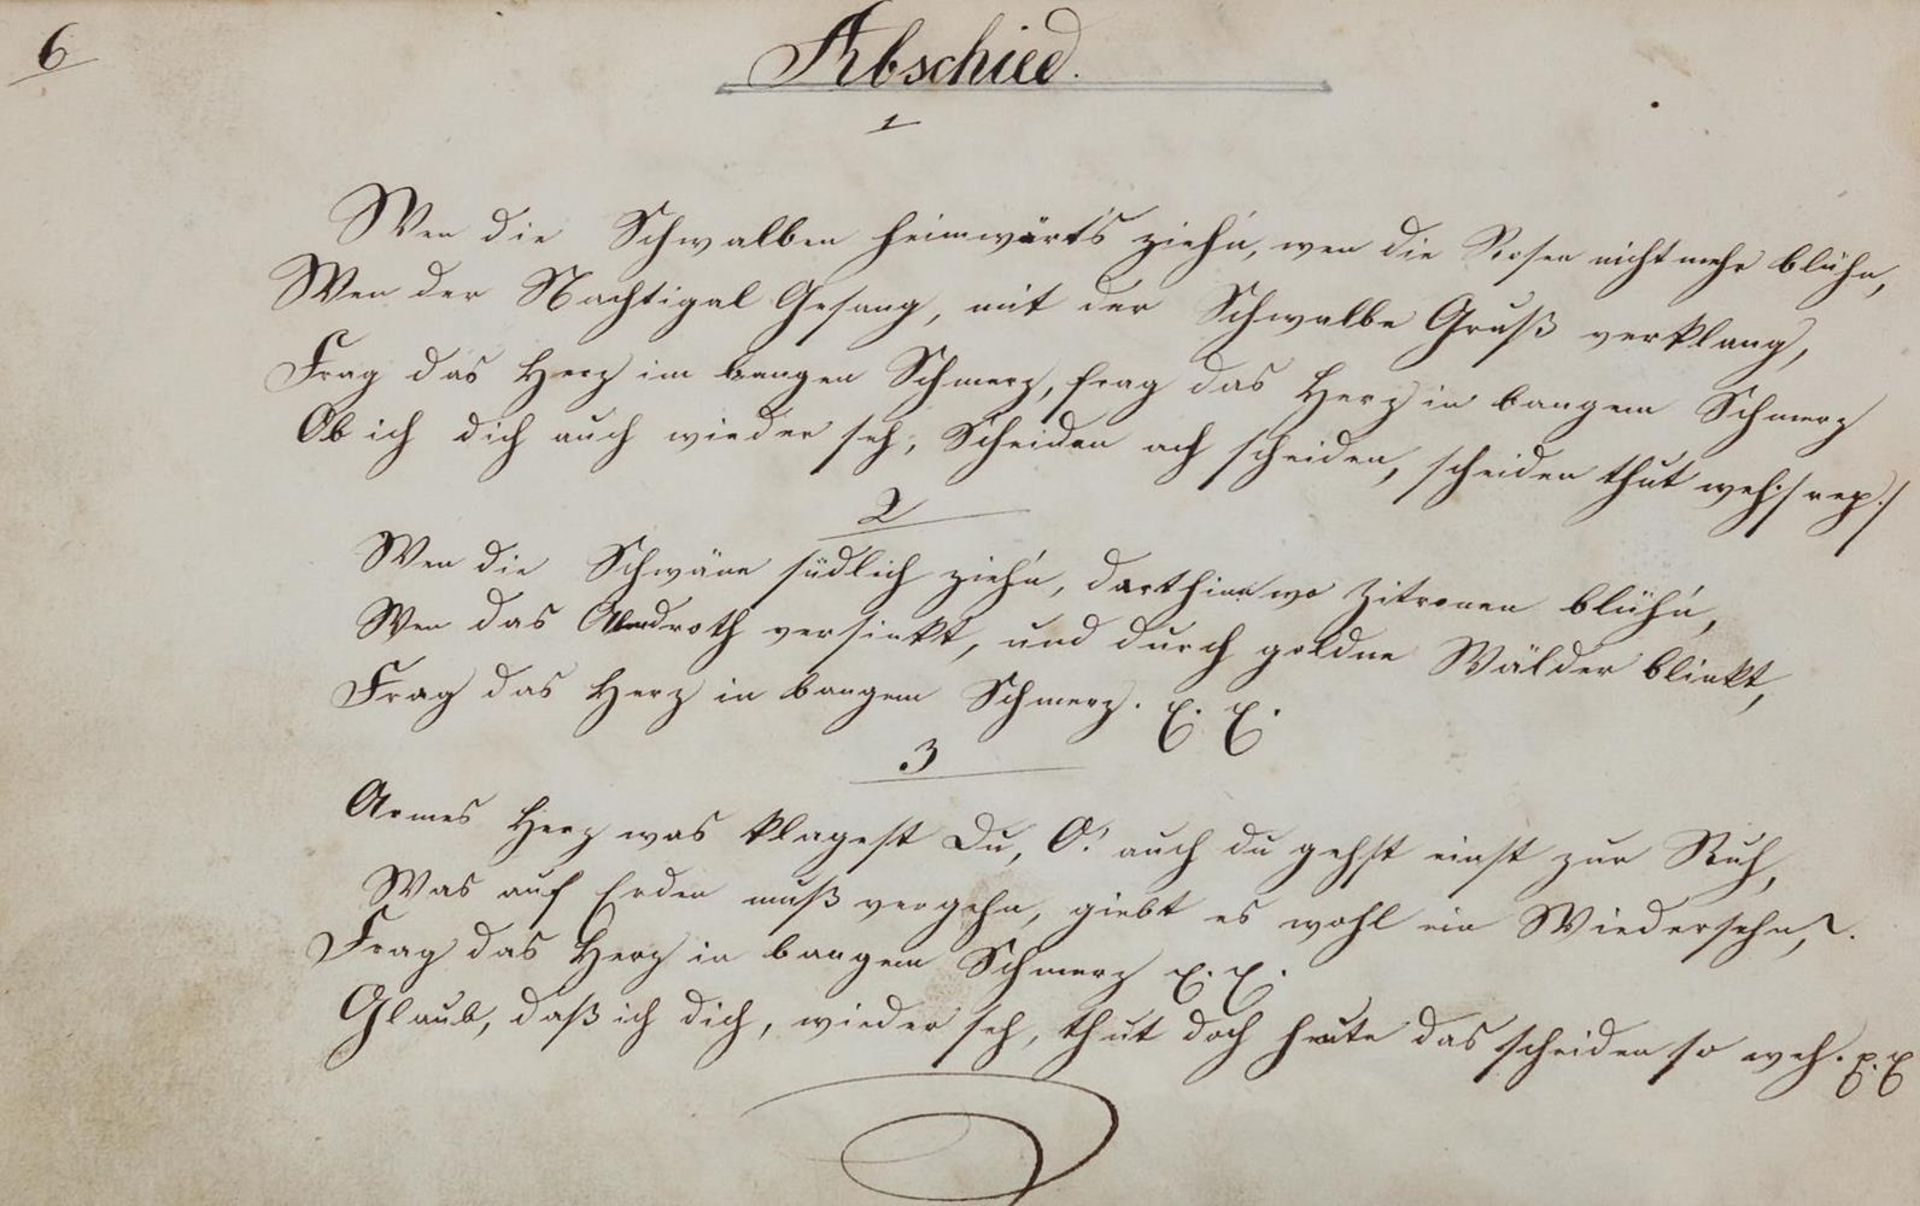 6
Abschied.
1
Wen die Schwalben heimwärts ziehn, wen die Rosen nicht mehr blühn,
Wen der Nachtigal Gesang, mit der Schwalbe Gruß verklang,
Frag das Herz im bangen Schmerz, frag das Herz in bangem Schmerz
Ob ich dich auch wieder seh, Scheiden ach scheiden, scheiden thut weh :/ rep :/
2
Wen die Schwäne südlich zieh'n, dorthin wo Zitronen blüh'n,
Wen das Abendroth versinkt, und durch goldne Wälder blinkt,
Frag das Herz in bangem Schmerz. x. x.
3
Armes Herz was klagest Du, O! auch du gehst einst zur Ruh,
Was auf Erden muß vergehn, giebt es wohl ein Wiedersehn,?.
Frag das Herz in bangem Schmerz x. x.
Glaub, daß ich dich, wieder seh, thut doch heute das scheiden so weh. x. x